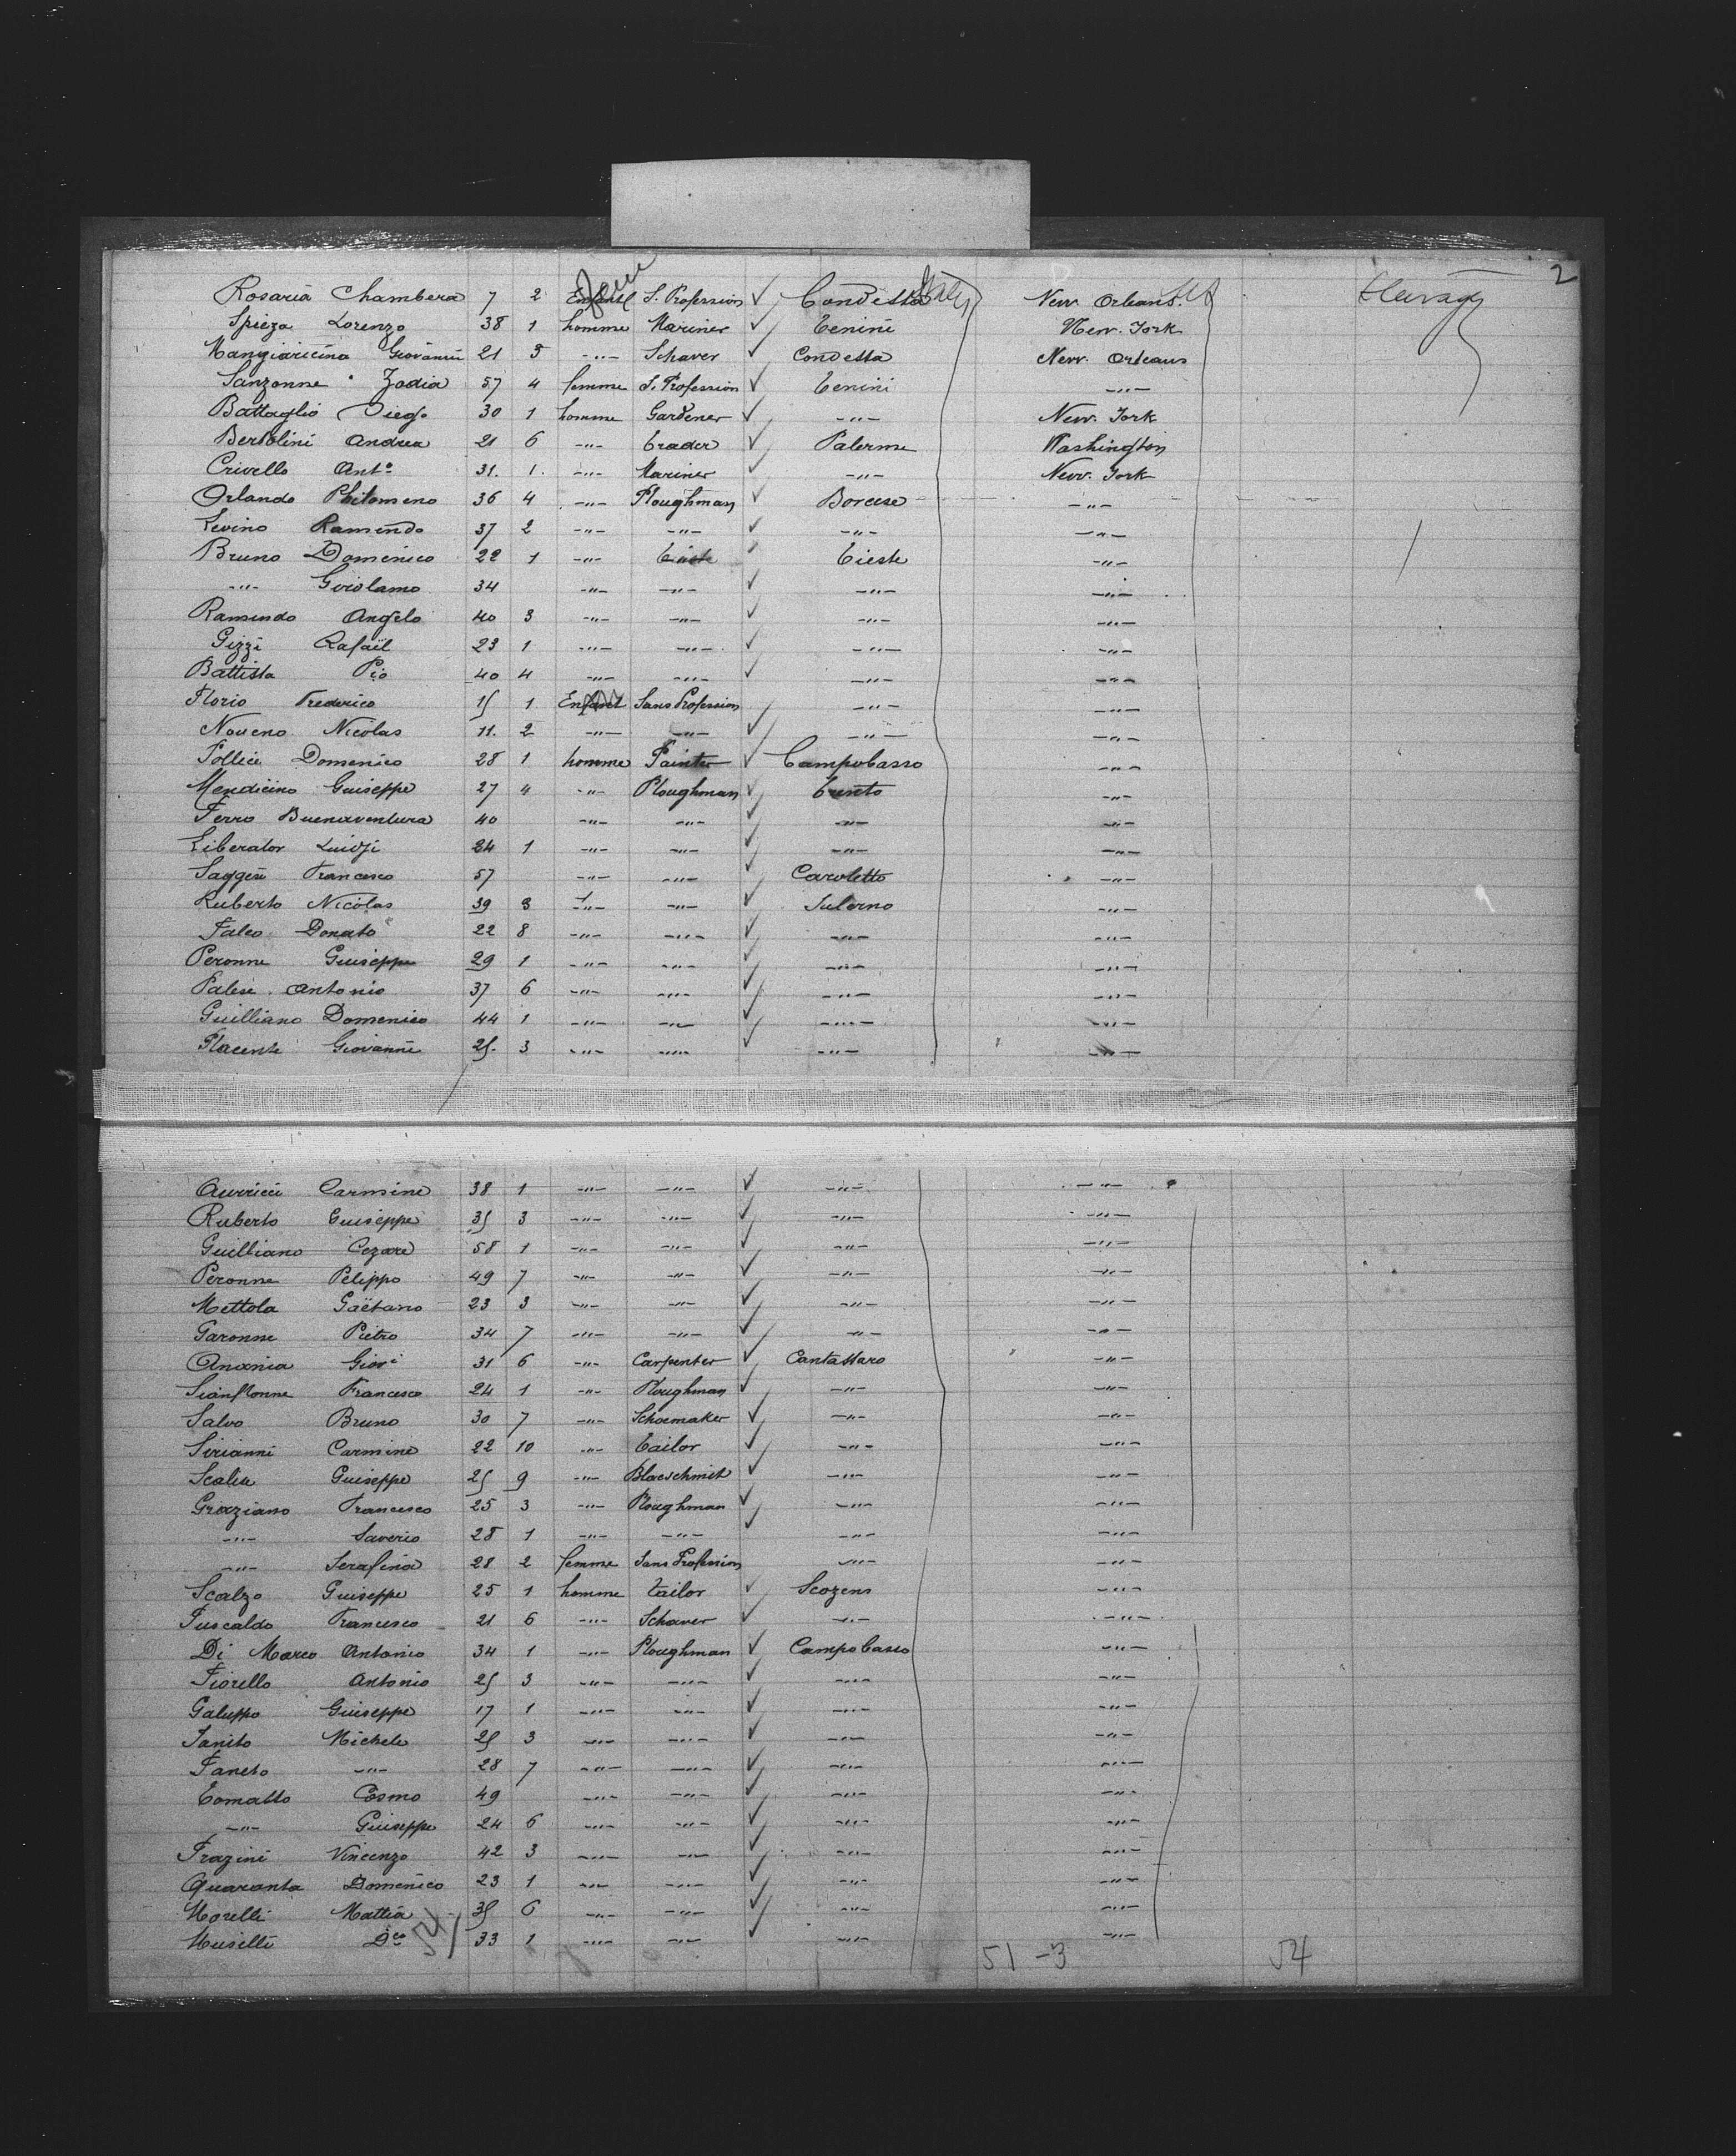 2
Rosaria Chambera 7 2 Enfant S. Profession ✓ Condessa Italy New. Orleans. US Steerage
Spieza Lorenzo 38 1 homme Mariner ✓ Tenini New. York
Mangiaricina Giovanni 21 5 -"- Schaver ✓ Condessa New. Orleans
Sanzonne Zadia 57 4 femme S. Profession ✓ Tenini -"-
Battaglio Diego 30 1 homme Gardener ✓ -"- New. York
Bertolini Andrea 21 6 -"- Trader ✓ Palerme Washington
Crivello Anto 31. 1. -"- Mariner ✓ -"- New. York
Orlando Philomeno 36 4 -"- Ploughman ✓ Borcese -"-
Levino Ramendo 37 2 -"- -"- ✓ -"- -"-
Bruno Domenico 22 1 -"- ✓ Tieste -"-
-"- Girolamo 34 -"- -"- ✓ -"- -"-
Ramendo Angelo 40 3 -"- -"- ✓ -"- -"-
Gizzi Rafaïl 23 1 -"- -"- ✓ -"- -"-
Battista Pio 40 4 -"- -"- ✓ -"- -"-
Florio Frederico 15 1 Enfant Sans Profession -"- -"-
Noveno Nicolas 11. 2 -"- -"- ✓ -"- -"-
Pollice Domenico 28 1 homme Painter ✓ Campobasso -"-
Mendicino Guiseppe 27 4 -"- Ploughman ✓ Trento -"-
Ferro Buenaventura 40 -"- -"- ✓ -"- -"-
Liberator Luidji 24 1 -"- -"- ✓ -"- -"-
Saggese Francesco 57 -"- -"- ✓ Caroletto -"-
Ruberto Nicolas 39 3 -"- -"- ✓ Salerno -"-
Falco Donato 22 8 -"- -"- ✓ -"- -"-
Peronne Guiseppe 29 1 -"- -"- ✓ -"- -"-
Palese Antonio 37 6 -"- -"- ✓ -"- -"-
Guilliano Domenico 44 1 -"- -"- ✓ -"- -"-
Placente Giovanni 25. 3 -"- -"- ✓ -"- -"-
Auricci Carmine 38 1 -"- -"- ✓ -"- -"-
Ruberto Guiseppe 35 3 -"- -"- ✓ -"- -"-
Guilliano Cezare 58 1 -"- -"- ✓ -"- -"-
Peronne Pelippo 49 7 -"- -"- ✓ -"- -"-
Mettola Gaëtano 23 3 -"- -"- ✓ -"- -"-
Garonne Pietro 34 7 -"- -"- ✓ -"- -"-
Anania Giovi 31 6 -"- Carpenter ✓ Cantassaro -"-
Francesco 24 1 -"- Ploughman ✓ -"- -"-
Salvo Bruno 30 7 -"- Schoemaker ✓ -"- -"-
Sirianni Carmine 22 10 -"- Tailor ✓ -"- -"-
Scalia Guiseppe 25 9 -"- Blacschmit ✓ -"- -"-
Graziano Francesco 25 3 -"- Ploughman ✓ -"- -"-
-"- Saverio 28 1 -"- -"- ✓ -"- -"-
-"- Serafina 28 2 femme Sans Profession -"- -"-
Scalzo Guiseppe 25 1 homme tailor ✓ Scozens -"-
Fuscaldo Francesco 21 6 -"- Schaver ✓ -"- -"-
Di Marco Antonio 34 1 -"- Ploughman ✓ Campobasso -"-
Fiorello Antonio 25 3 -"- -"- ✓ -"- -"-
Galuppo Guiseppe 17 1 -"- -"- ✓ -"- -"-
Janito Michele 25 3 -"- -"- ✓ -"- -"-
Faneto -"- 28 7 -"- -"- ✓ -"- -"-
Tomatto Cosmo 49 -"- -"- ✓ -"- -"-
-"- Guiseppe 24 6 -"- -"- ✓ -"- -"-
Frazini Vincenzo 42 3 -"- -"- ✓ -"- -"-
Quaranta Domenico 23 1 -"- -"- ✓ -"- -"-
Morelli Mattia 35 6 -"- -"- ✓ -"- -"-
Musilli Dco 54 33 1 -"- -"- ✓ -"- -"-
51 - 3 54